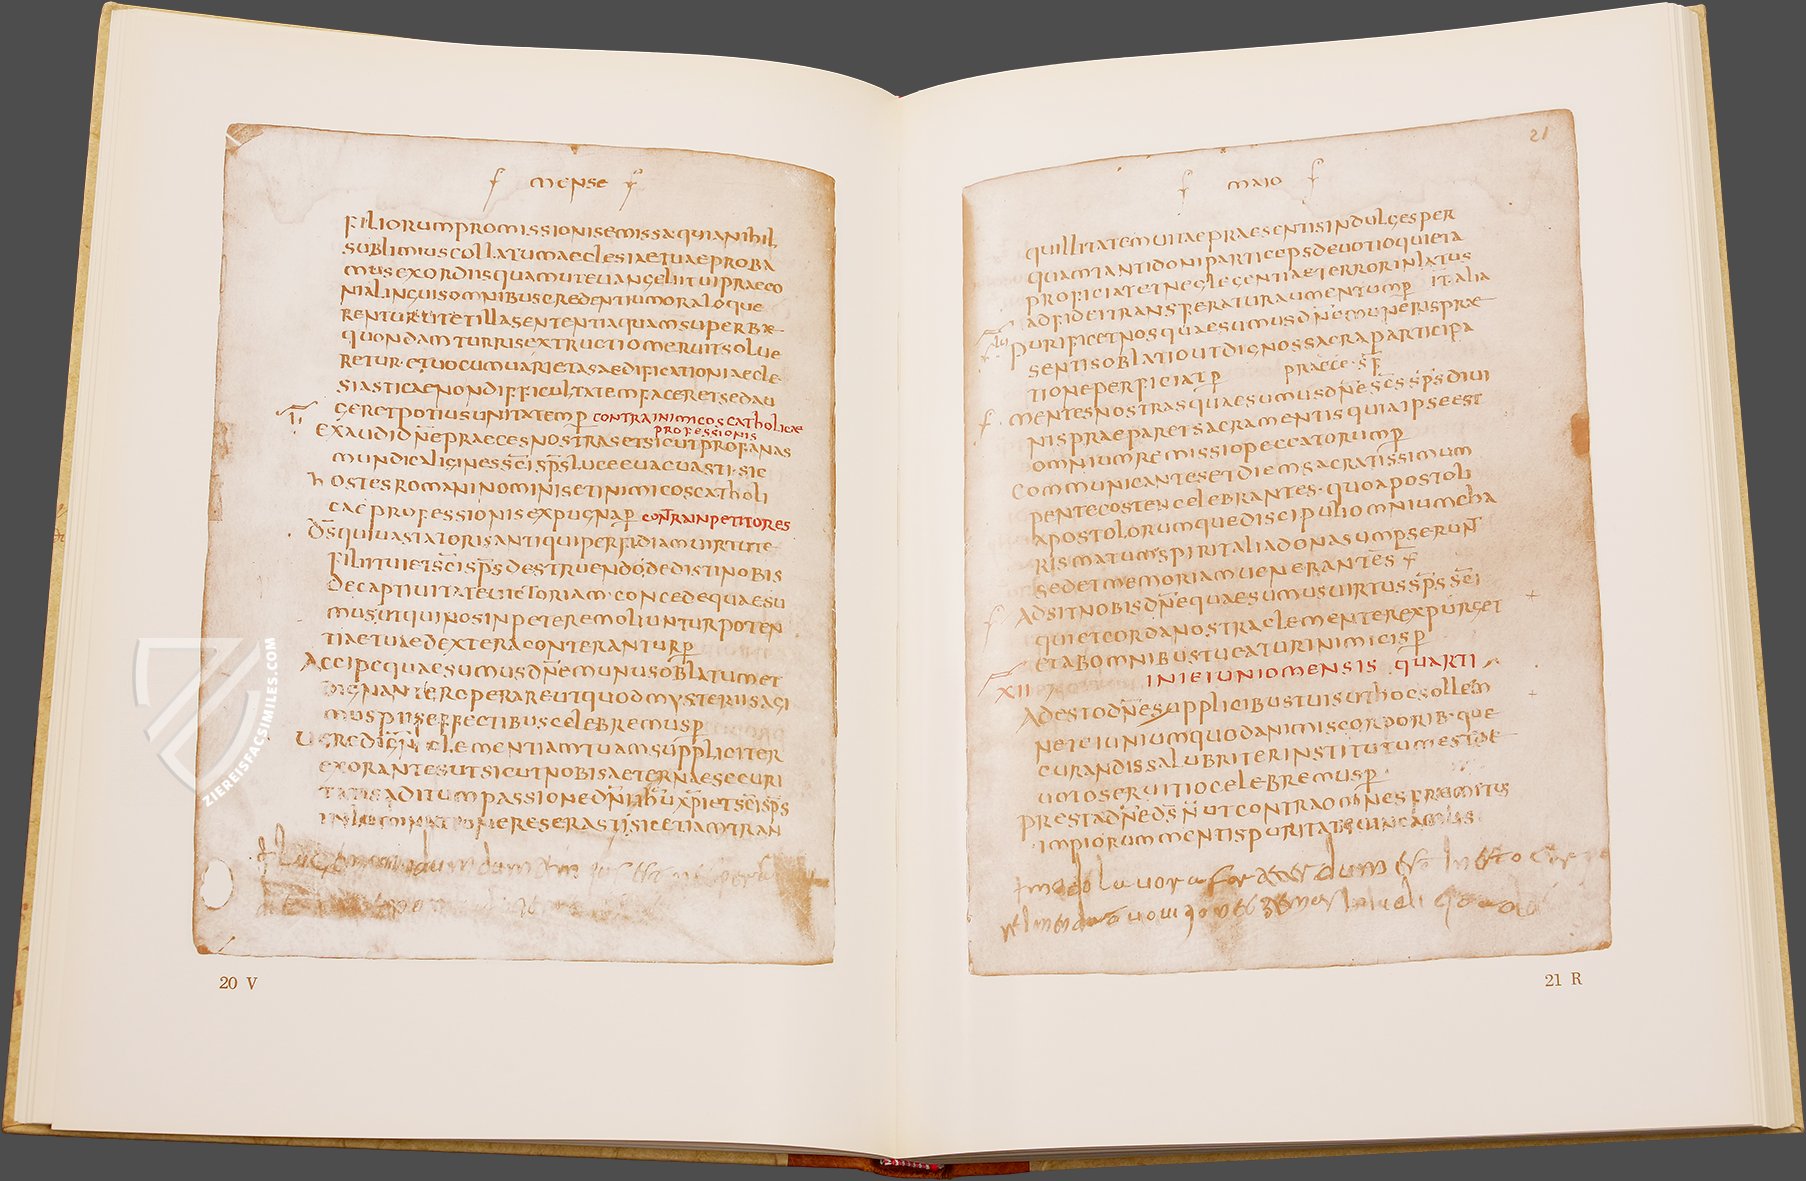 mense
filiorum promissionis emissa quia nihil
sublimius collatum aeclesiae tuae proba
mus exordiis quam ut evangelii tui praeco
nia linguis omnibus credentium ora loque
rentur ut et illa sententia quam superbae
quondam turris extructio meruit solve
retur et vocum varietas aedificationi aecle
siasticae non difficultatem faceret sed au
geret potius unitatem p̄ contra inimicos catholicae
professionis
exaudi dn̄e praeces nostras et sicut profanas
mundi caligines sc̄i sp̄s luce evacuasti sic
hostes romani nominis et inimicos catholi
cae professionis expugna p̄ contra inpetitores
ds̄ qui vastatoris antiqui perfidiam virtute
filii tui et sc̄i sp̄s destruendo dedisti nobis
de captivitate victoriam concede quaesu
mus ut qui nos inpetere moliuntur poten
tiae tuae dextera conterantur p̄
Accipe quaesumus dn̄e munus oblatum et
dignanter operare ut quod mysteriis agi
mus piis effectibus celebremus p̄
clementiam tuam suppliciter
exorantes ut sicut nobis aeternae securi
tatis aditum passione dn̄i ihū xp̄i et sc̄i sp̄s
reserasti sic etiam tran
20 V
21
maio
quillitatem vitae praesentis indulges per
quam tanti doni particeps devotio quieta
proficiat et neglegentiae terror inlatus
ad fidei transferatur aumentum p̄ it alia
Purificet nos quaesumus dn̄e muneris prae
sentis oblatio ut dignos sacra participa
tione perficiat p̄ praece sf̄
mentes nostras quaesumus dn̄e sc̄s sp̄s divi
nis praeparet sacramentis quia ipse est
omnium remissio peccatorum p̄
communicantes et diem sacratissimum
pentecosten celebrantes quo apostoli
apostolorumque discipuli omnium cha
rismatum spiritalia dona sumpserunt
sed et memoriam venerantes
Adsit nobis dn̄e quaesumus virtus sp̄s sc̄i
qui et corda nostra clementer expurget
et ab omnibus tueatur inimicis p̄
XII in ieiunio mensis quarti
Adesto dn̄e supplicibus tuis ut hoc sollem
ne ieiunium quod animis corporibque
curandis salubriter institutum est de
voto servitio celebremus p̄
presta dn̄e ds̄ n̄ ut contra omnes fremitus
impiorum mentis puritate vincamus
21 R
ZIEREISFACSIMILES.COM